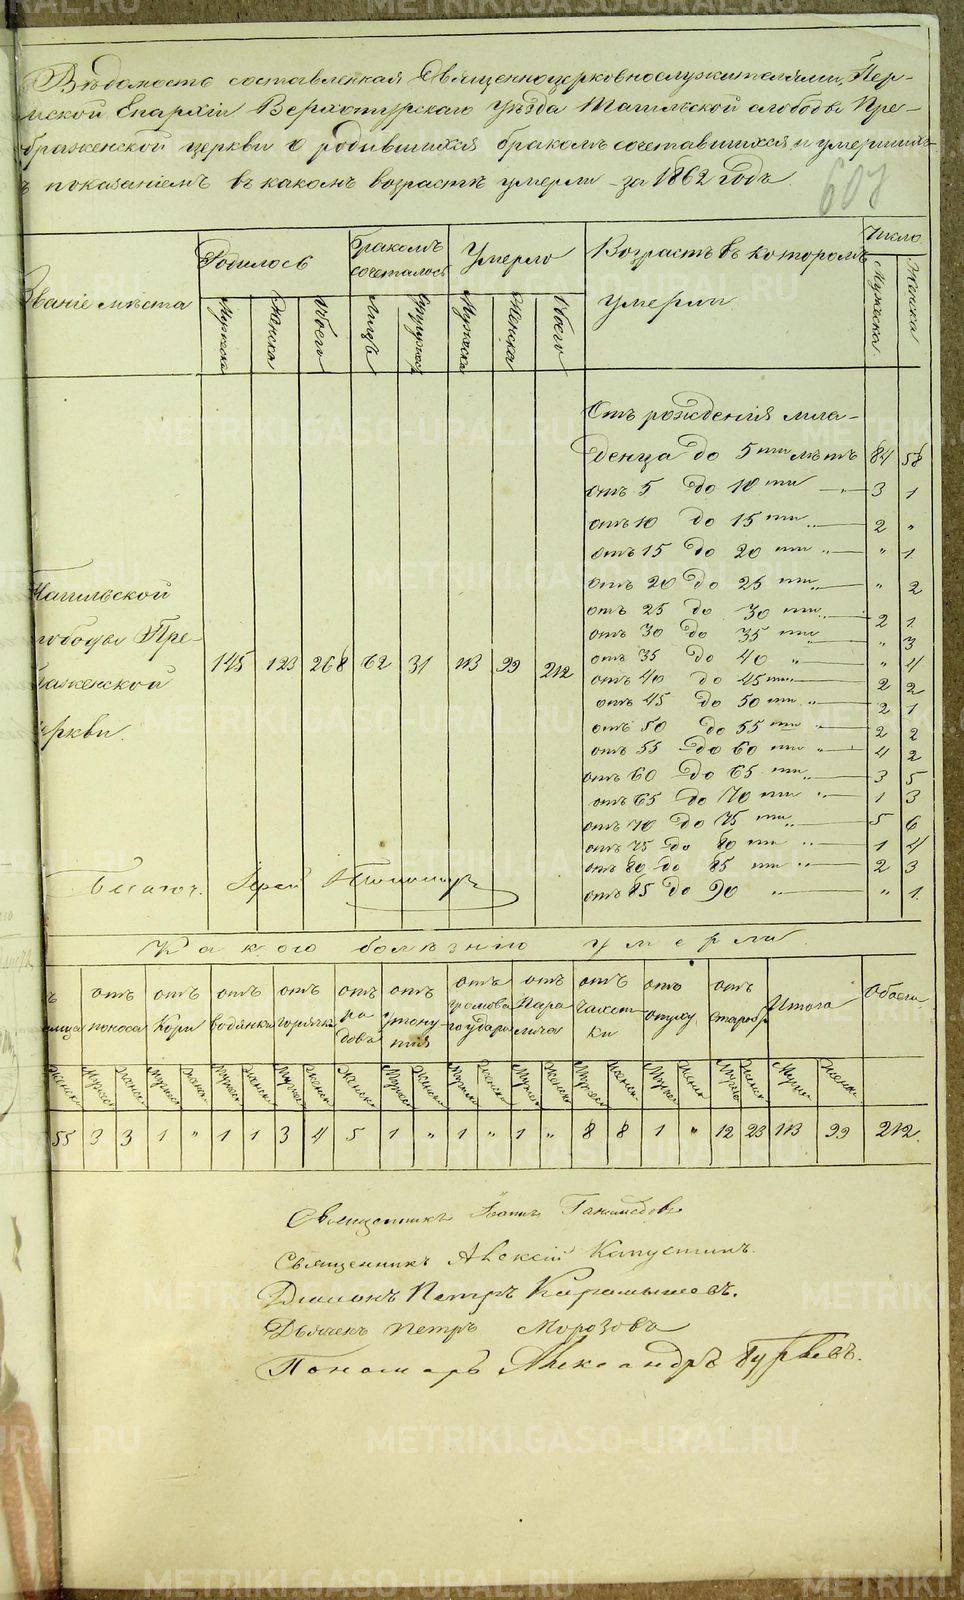 Вѣдомость составленная Священноцерковнослужителями, Пер-
мской Епархіи Верхотурскаго Уѣзда Тагильской слободы Пре-
браженской церкви о родившихся бракомъ сочетавшихся и умершихъ
ъ показаніемъ въ какомъ возрастѣ умерли за 1862 годъ.
607
Званіе мѣста
Родилось
Бракомъ сочеталось
Умерло
Возрастъ въ которомъ умерли
Число
Мужеска Женска Обоего Лицъ Мужеска Женска Обоего Мужеска Женска
Отъ рожденія мла-
денца до 5ти лѣтъ 84 58
отъ 5 до 10ти „ 3 1
отъ 10 до 15ти „ 2 „
отъ 15 до 20ти „ „ 1.
отъ 20 до 25ти „ „ 2
отъ 25 до 30ти „ 2 1.
отъ 30 до 35ти „ „ 3
отъ 35 до 40 „ „ 4
отъ 40 до 45ти „ 2 2
отъ 45 до 50ти „ 2 1
отъ 50 до 55ти „ 2 2
отъ 55 до 60ти „ 4 2
отъ 60 до 65ти „ 3 5
отъ 65 до 70ти „ 1 3
отъ 70 до 75ти „ 5 6
отъ 75 до 80ти „ 1 4
отъ 80 до 85ти „ 2 3
отъ 85 до 90 „ „ 1.
Тагильской
слободы Пре-
браженской
церкви.
145 123 268 62 31 113 99 212
Благоч. Іерей
Какого болѣзнію умерли
отъ поноса
отъ Кори
отъ водянки
отъ горячки
отъ родовъ
отъ утонутія
отъ громова го удара
отъ Паралича
отъ чахотки
отъ опуху
отъ старос.
Итого
Обоего
Женска Мужес Женска Мужеска Женска Мужеск Женска Мужеск Женска Женска Мужеск Женска Мужеск Женска Мужеск Женска Мужеск Женска Мужеск Женск Мужеск Женска Мужеск Женска
55 3 3 1 „ 1 1 3 4 5 1 „ 1 „ 1 „ 8 8 1 „ 12 23 113 99 212.
Священникъ Іоаннъ Ганимедовъ
Священникъ Алексій Капустинъ.
Діаконъ Петръ Карамышевъ.
Дьячекъ Петръ Морозовъ
Пономарь Александръ Гурьевъ.
METRIKI.GASO-URAL.RU